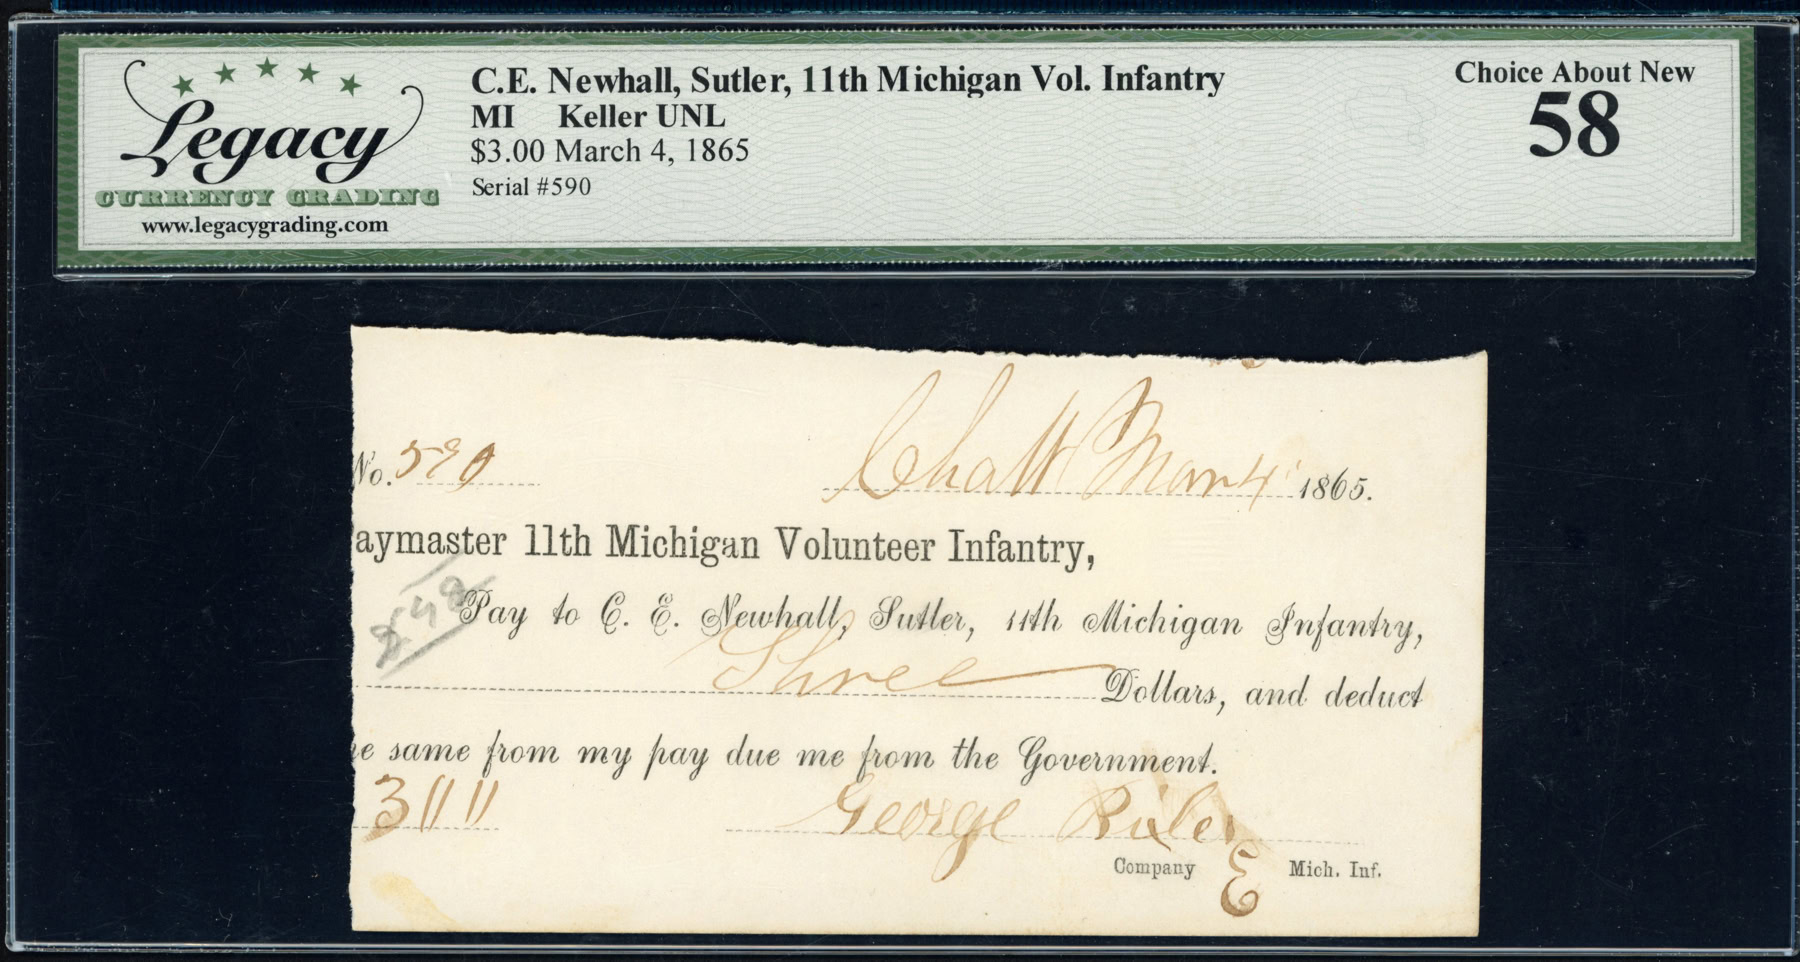 Legacy
CURRENCY GRADING
www.legacygrading.com
C.E. Newhall, Sutler, 11th Michigan Vol. Infantry
MI Keller UNL
$3.00 March 4, 1865
Serial #590
Choice About New
58
No. 590
Chatt Mar 4 1865.
aymaster 11th Michigan Volunteer Infantry,
Pay to C. E. Newhall, Sutler, 11th Michigan Infantry,
Three Dollars, and deduct
he same from my pay due me from the Government.
3
George
Company E Mich. Inf.